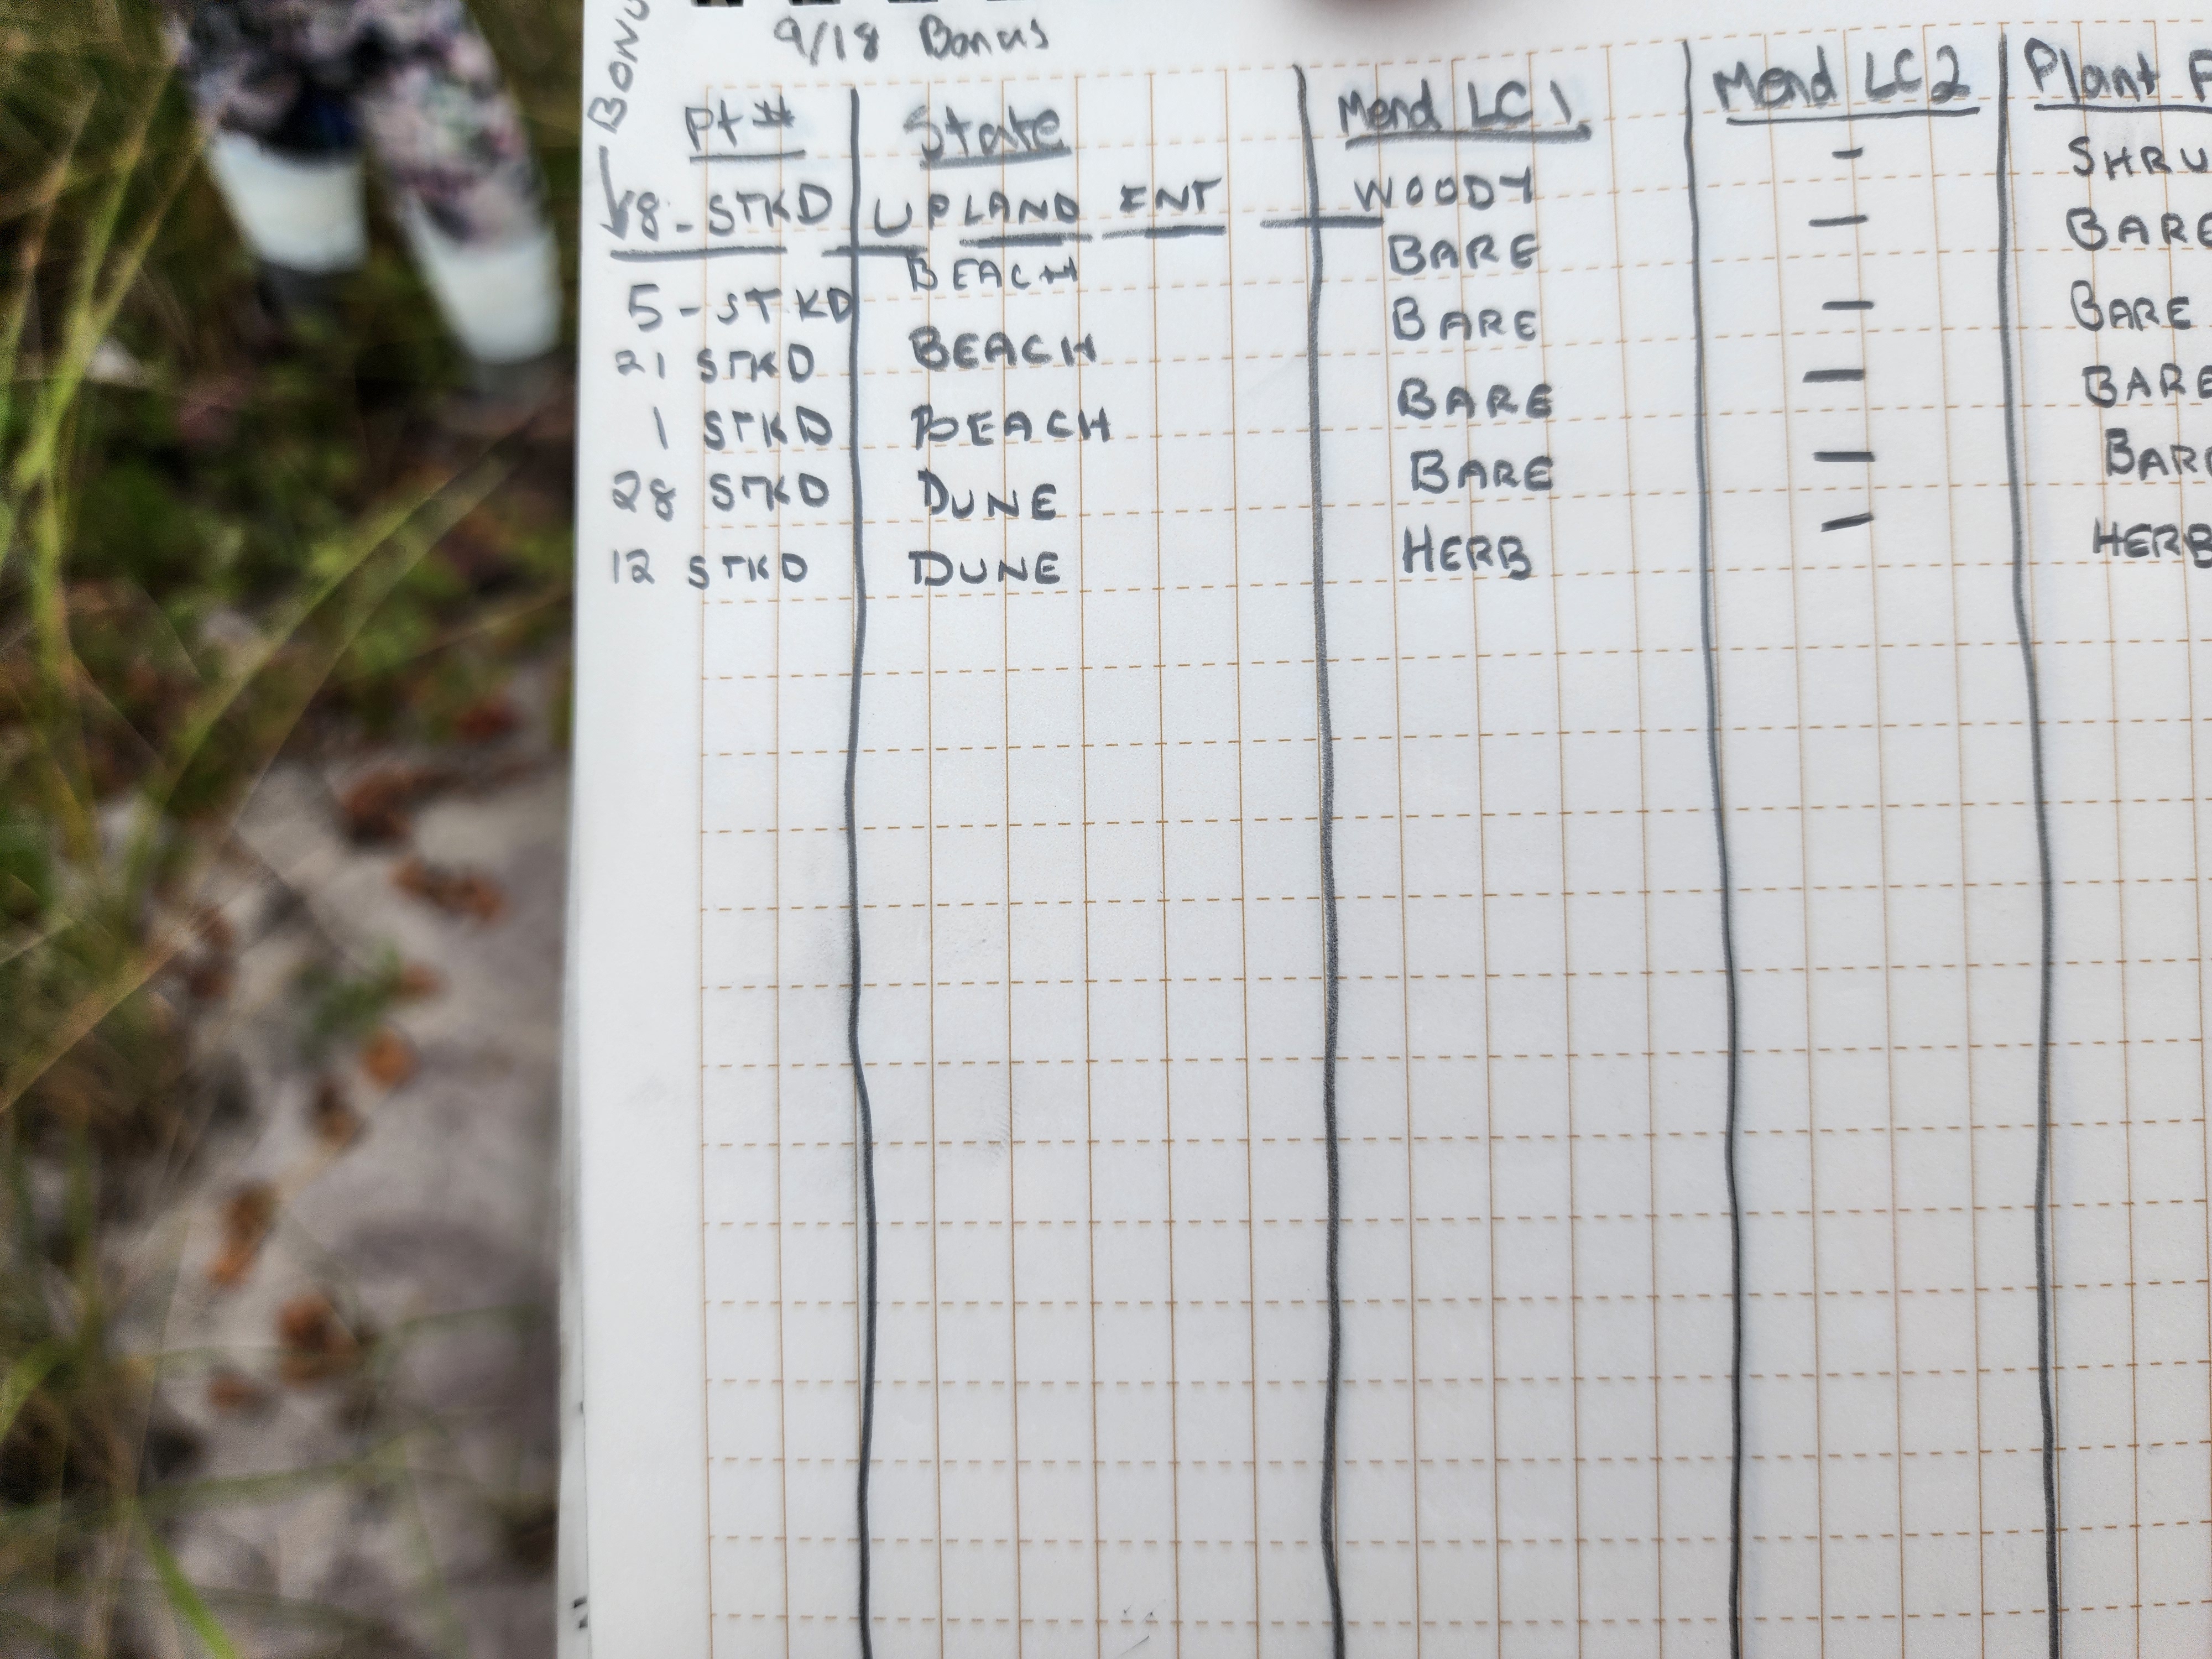 9/18 Bonus
Pt # State Mend LC1 Mend LC2 Plant
8 - STKD UPLAND INT WOODY —
5 - STKD BEACH BARE — BARE
21 STKD BEACH BARE — BARE
1 STKD BEACH BARE — BARE
28 STKD DUNE BARE —
12 STKD DUNE HERB — HERB